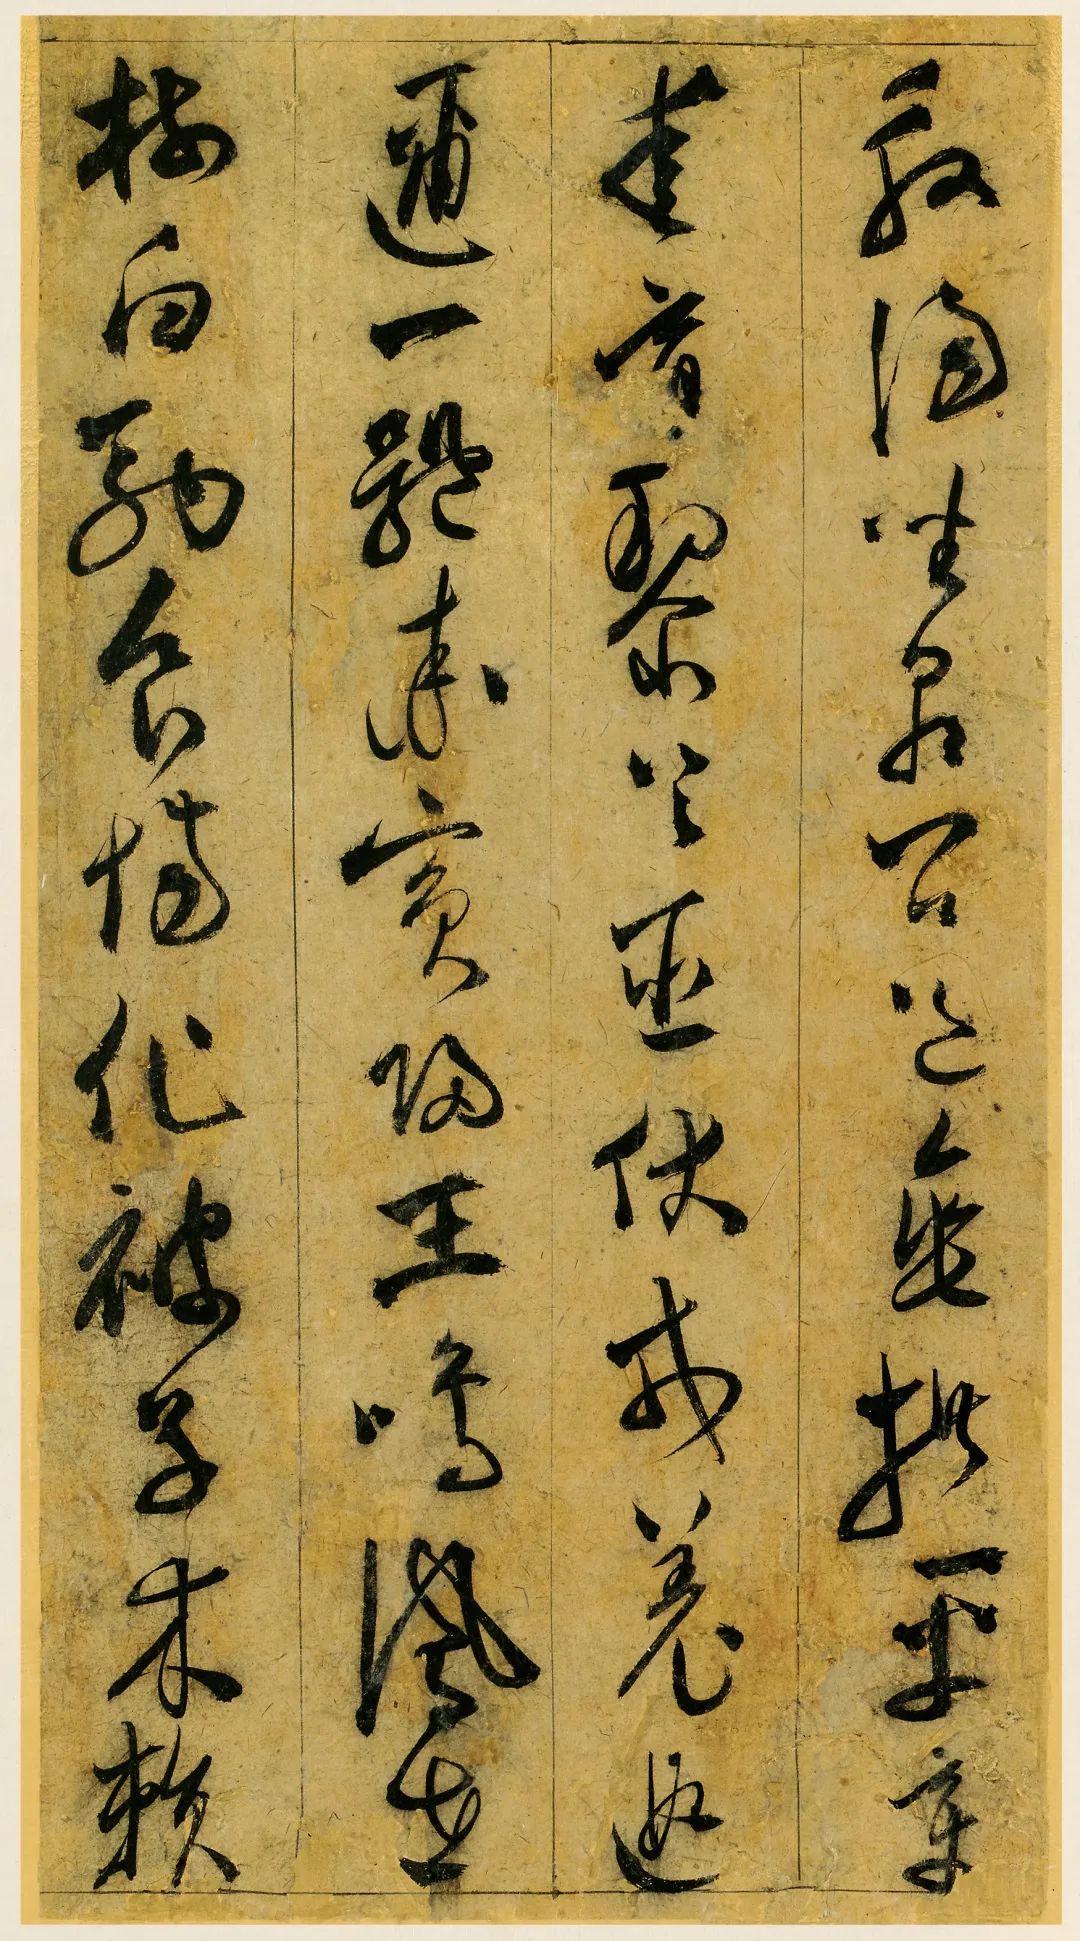 殷湯坐朝問道垂拱平章
愛育黎首臣伏戎羌遐
邇一體率賓歸王鳴鳳在
樹白駒食場化被草木賴